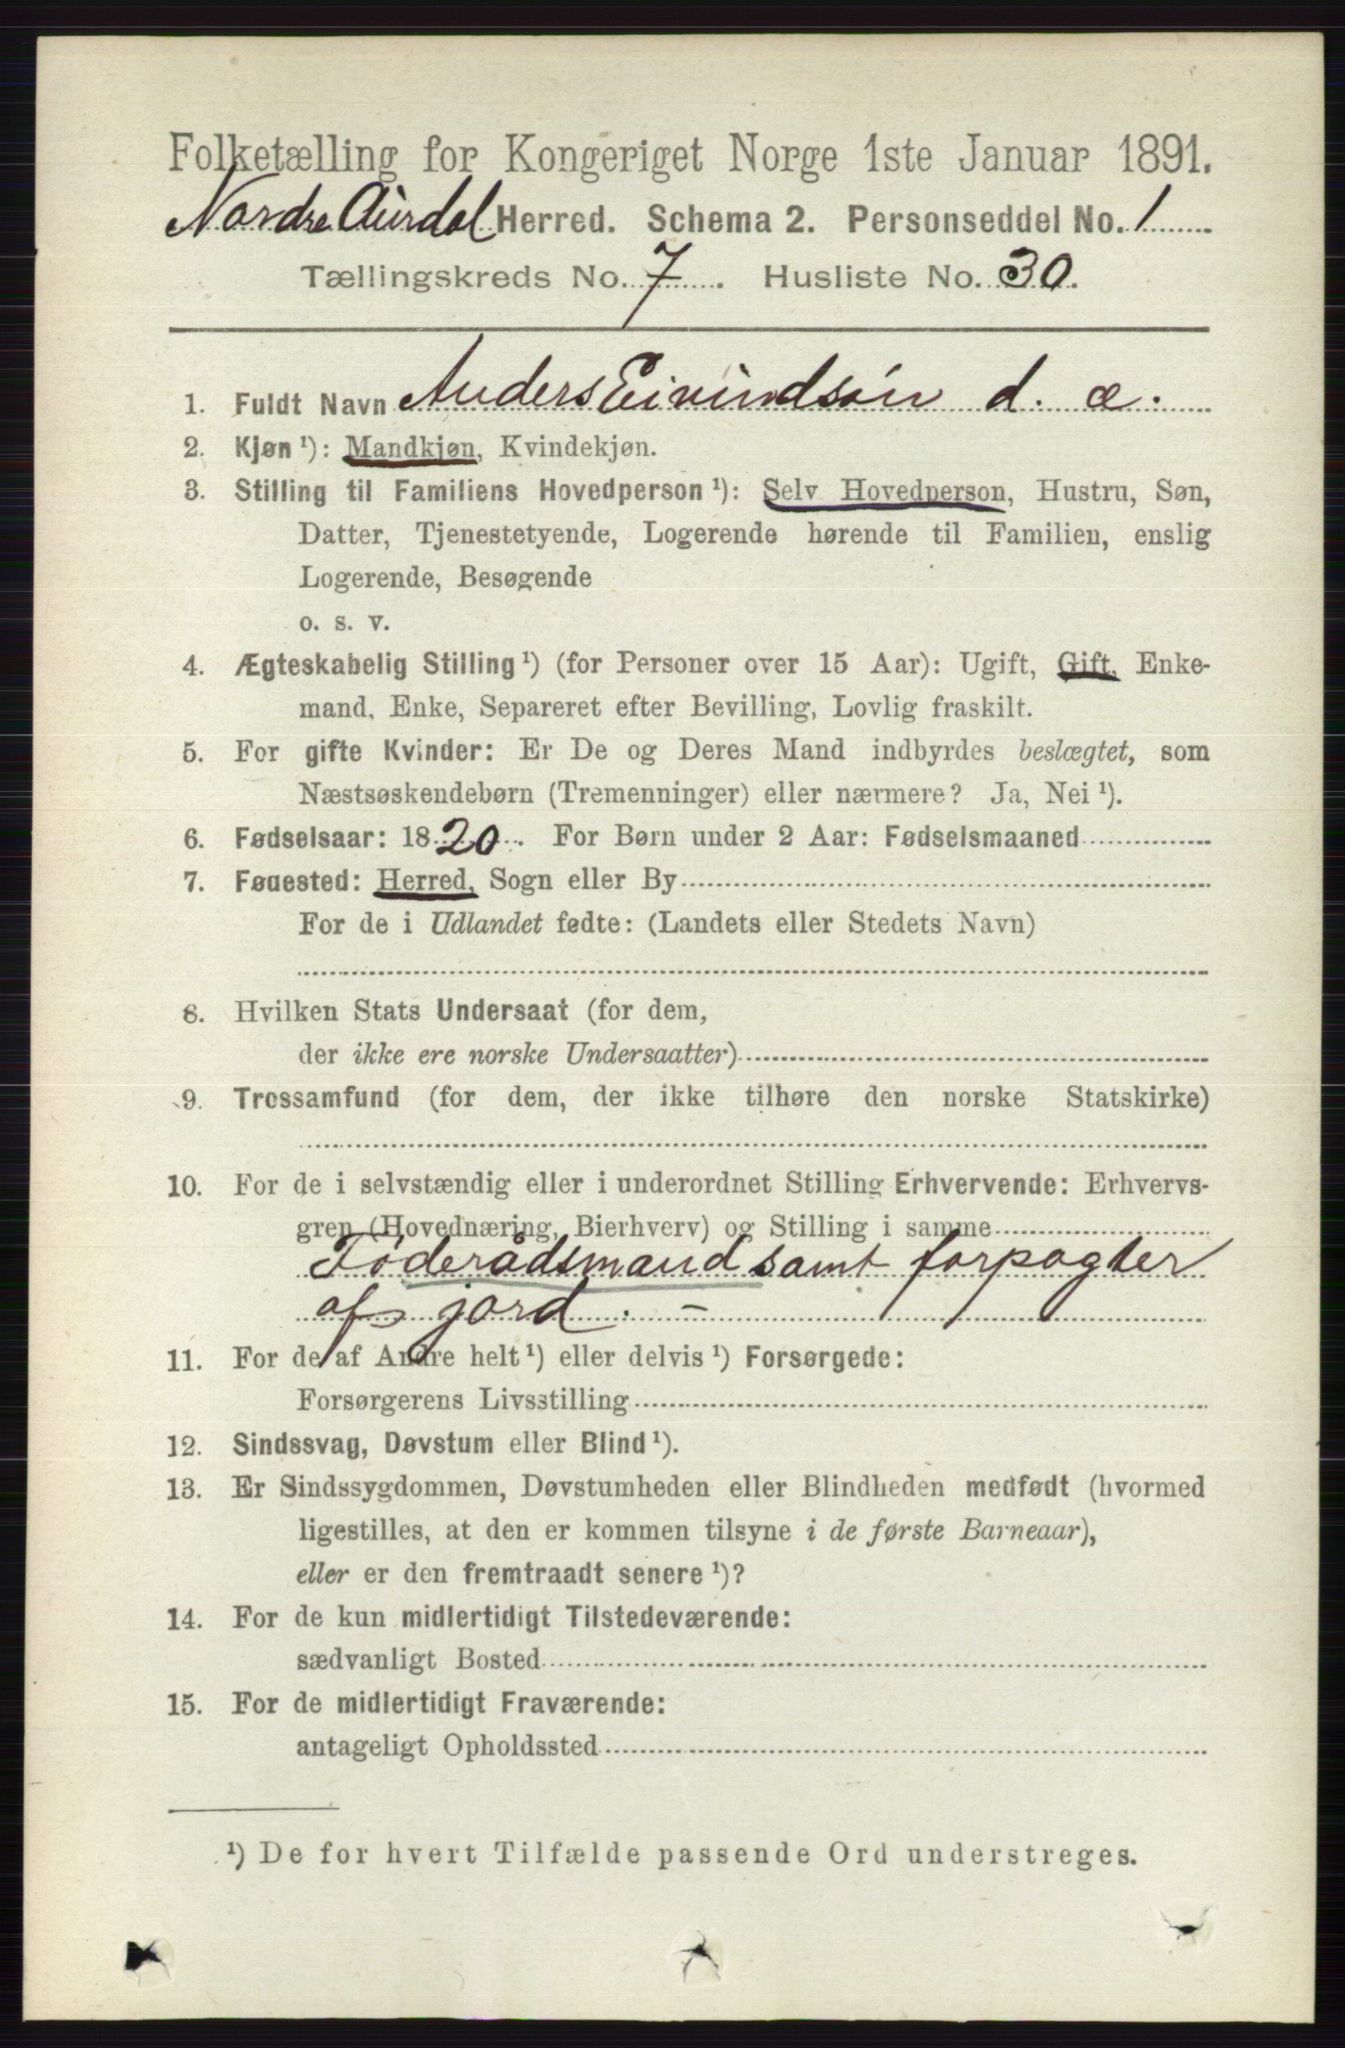 Folketælling for Kongeriget Norge 1ste Januar 1891.
Nordre Aurdal Herred. Schema 2. Personseddel No. 1
Tællingskreds No. 7. Husliste No. 30.
1. Fuldt Navn Anders Eivindsøn d. æ.
2. Kjøn ¹): Mandkjøn, Kvindekjøn.
3. Stilling til Familiens Hovedperson ¹): Selv Hovedperson, Hustru, Søn,
Datter, Tjenestetyende, Logerende hørende til Familien, enslig
Logerende, Besøgende
o. s. v.
4. Ægteskabelig Stilling ¹) (for Personer over 15 Aar): Ugift, Gift, Enke-
mand, Enke, Separeret efter Bevilling, Lovlig fraskilt.
5. For gifte Kvinder: Er De og Deres Mand indbyrdes beslægtet, som
Næstsøskendebørn (Tremenninger) eller nærmere? Ja, Nei ¹).
6. Fødselsaar: 1820. For Børn under 2 Aar: Fødselsmaaned
7. Fødested: Herred, Sogn eller By
For de i Udlandet fødte: (Landets eller Stedets Navn)
8. Hvilken Stats Undersaat (for dem,
der ikke ere norske Undersaatter)
9. Trossamfund (for dem, der ikke tilhøre den norske Statskirke)
10. For de i selvstændig eller i underordnet Stilling Erhvervende: Erhvervs-
gren (Hovednæring, Bierhverv) og Stilling i samme
Føderådsmand samt forpagter
af jord. –
11. For de af Andre helt ¹) eller delvis ¹) Forsørgede:
Forsørgerens Livsstilling
12. Sindssvag, Døvstum eller Blind ¹).
13. Er Sindssygdommen, Døvstumheden eller Blindheden medfødt (hvormed
ligestilles, at den er kommen tilsyne i de første Barneaar),
eller er den fremtraadt senere ¹)?
14. For de kun midlertidigt Tilstedeværende:
sædvanligt Bosted
15. For de midlertidigt Fraværende:
antageligt Opholdssted
¹) De for hvert Tilfælde passende Ord understreges.